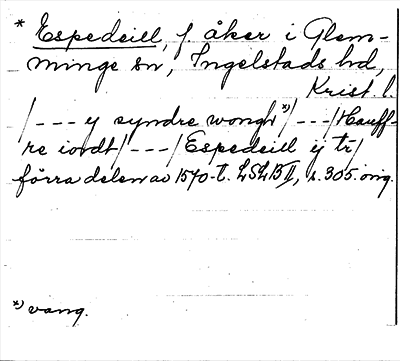 * Espedeill, f. åker i Glem-
minge sn, Ingelstads hd,
Krist. l.
/--- y syndre wongh *)/---/Hauff-
re iordt/---/Espedeill ij tr/
förra delen av 1570-t. LSLB II, s. 305. orig.
*) vang.